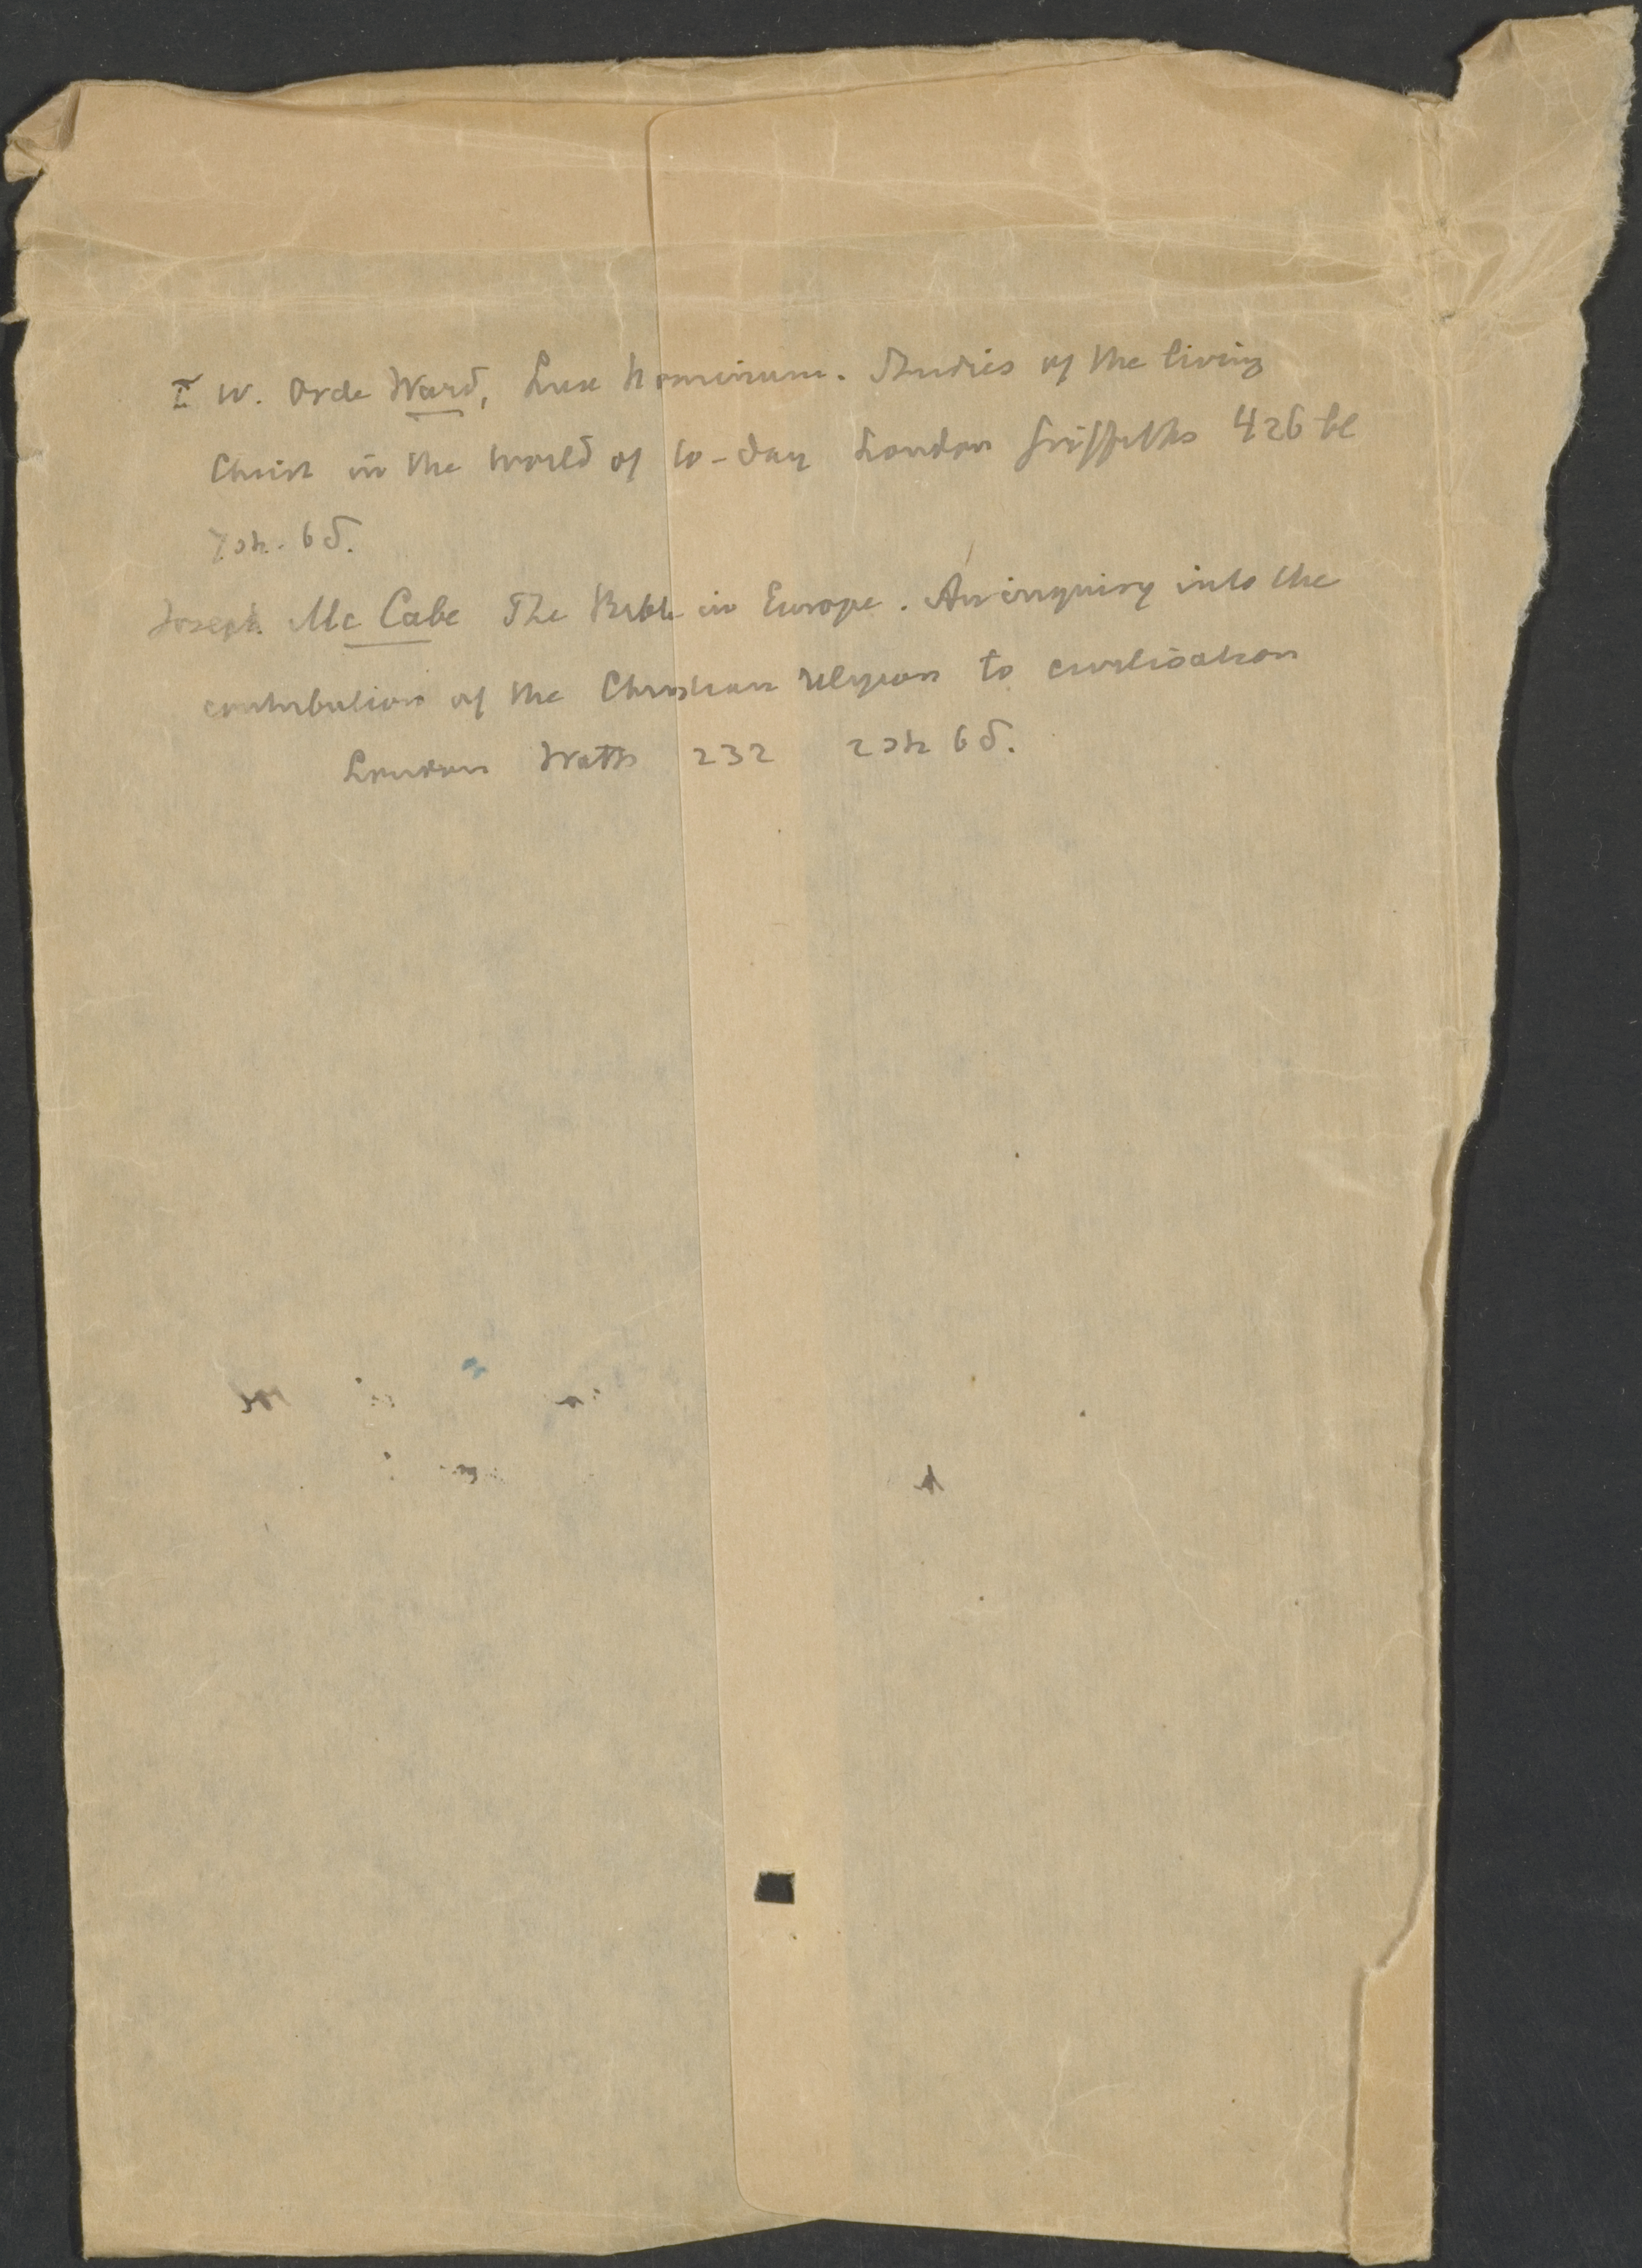 F W. Orde Ward, Lux hominum. Studies of the living
Christ in the world of to-day London Griffiths 426 bl
7 sh. 6 d.
Joseph Mc Cabe The Bible in Europe. An inquiry into the
contribution of the Christian religion to civilisation
London Watts 232 2 sh 6 d.